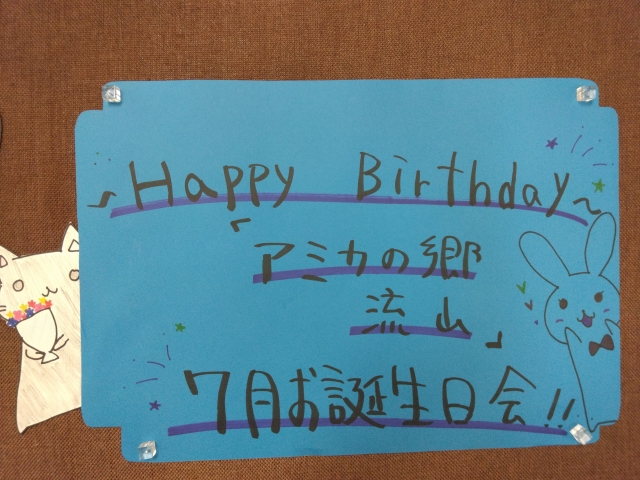 ~Happy Birthday~
「アミカの郷
流山」
7月お誕生日会!!